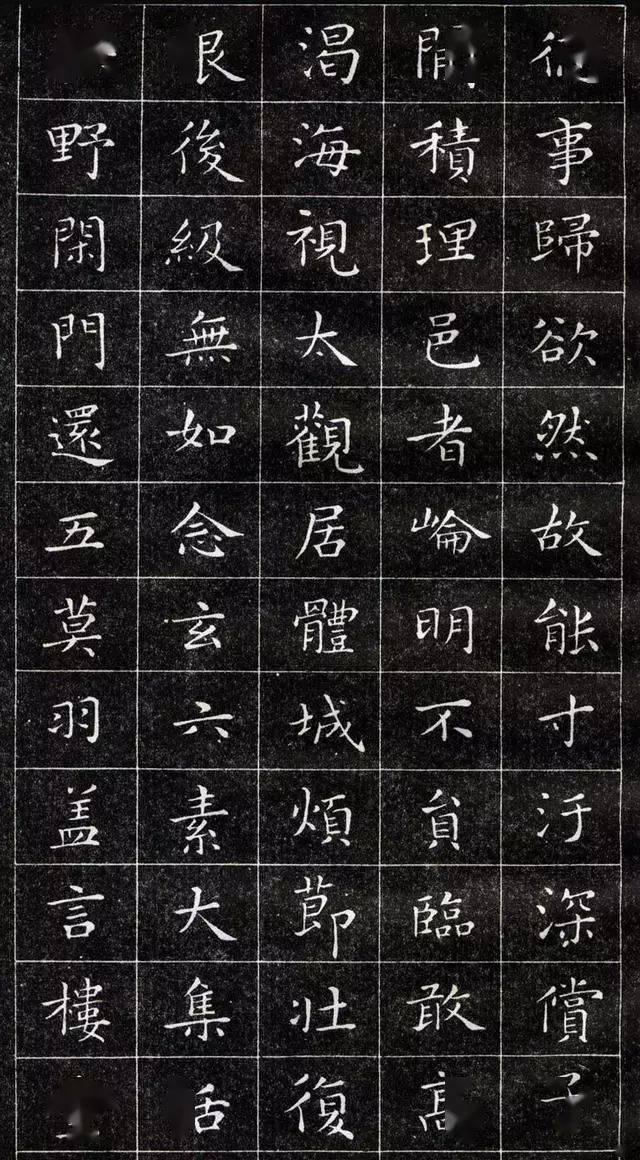 事歸欲然故能寸汙深償
積理邑者崘明不貟臨敢
渴海視太觀居體城煩莭壯復
艮後級無如念玄六素大集
野閑門還五莫羽盖言樓